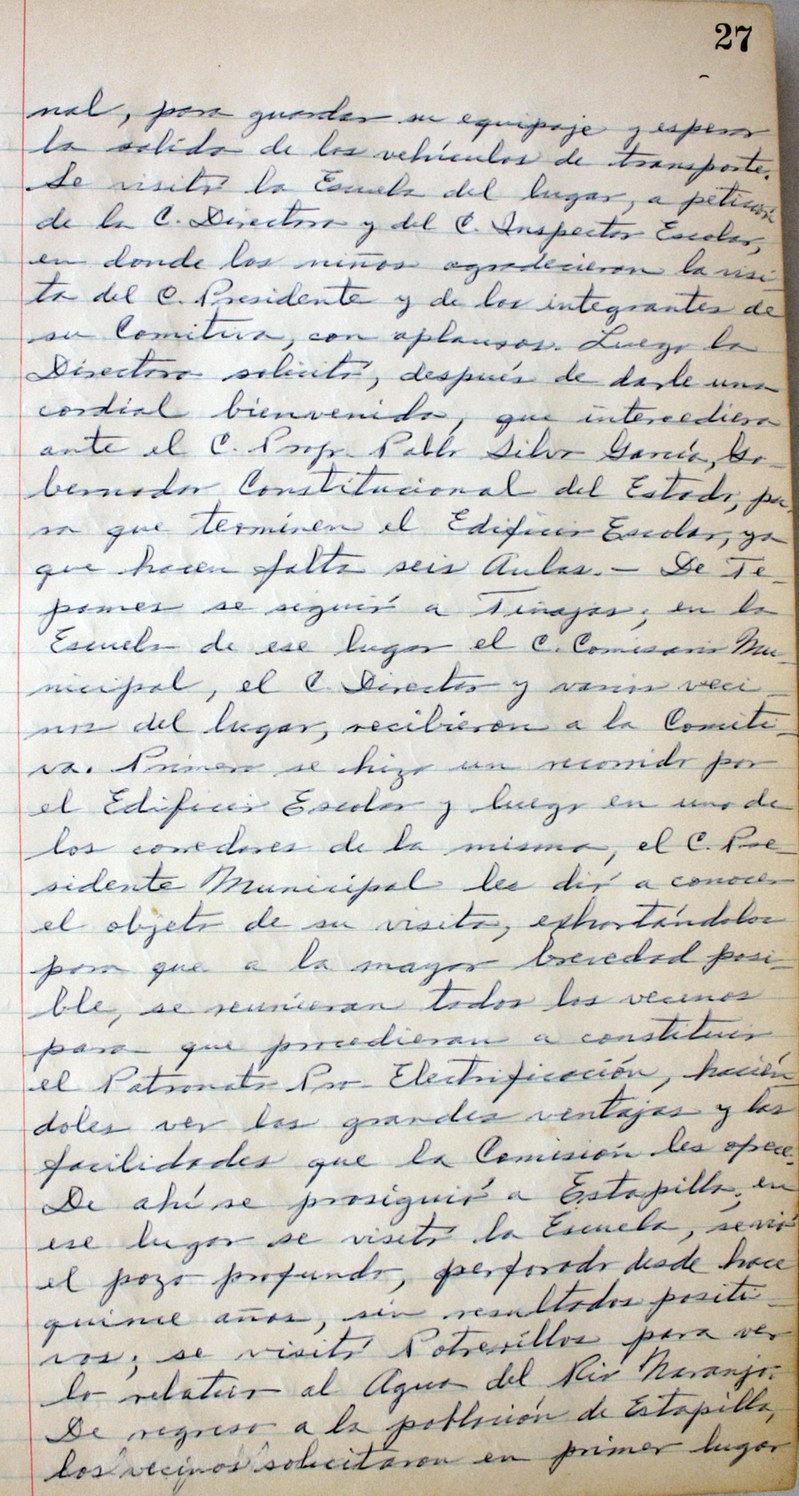 27
nal, para guardar su equipaje y esperar
la salida de los vehículos de transporte.
Se visitó la Escuela del lugar, a petición
de la C. Directora y del C. Inspector Escolar,
en donde los niños agradecieron la visi-
ta del C. Presidente y de los integrantes de
su Comitiva, con aplausos. Luego la
Directora solicitó, después de darle una
cordial bienvenida, que intercediera
ante el C. Profr. Pablo Silva García, Go-
bernador Constitucional del Estado, pa-
ra que terminen el Edificio Escolar, ya
que hacen falta seis Aulas.- De Te-
pames se siguió a Tinajas; en la
Escuela de ese lugar el C. Comisario Mu-
nicipal, el C. Director y varios veci-
nos del lugar, recibieron a la Comiti-
va. Primero se hizo un recorrido por
el Edificio Escolar y luego en uno de
los corredores de la misma, el C. Pre-
sidente Municipal les dió a conocer
el objeto de su visita, exhortándolos
para que a la mayor brevedad posi-
ble, se reunieran todos los vecinos
para que procedieran a constituir
el Patronato Pro-Electrificación, hacién-
doles ver las grandes ventajas y las
facilidades que la Comisión les ofrece.
De ahí se prosiguió a Estapilla; en
ese lugar se visitó la Escuela, se vió
el pozo profundo, perforado desde hace
quince años, sin resultados positi-
vos; se visitó Potrerillos para ver
lo relativo al Agua del Rio Naranjo.
De regreso a la población de Estapilla,
los vecinos solicitaron en primer lugar